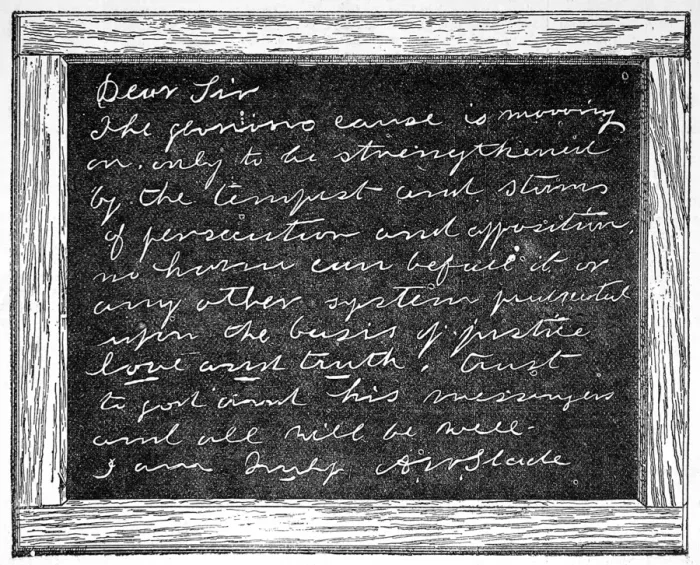 Dear Sir
The glorious cause is moving
on. only to be strengthened
by the tempest and storms
of persecution and opposition.
no harm can befall it or
any other system
upon the basis of justice
love and truth. trust
to god and his messengers
and all will be well-
I am Truly A W Slade